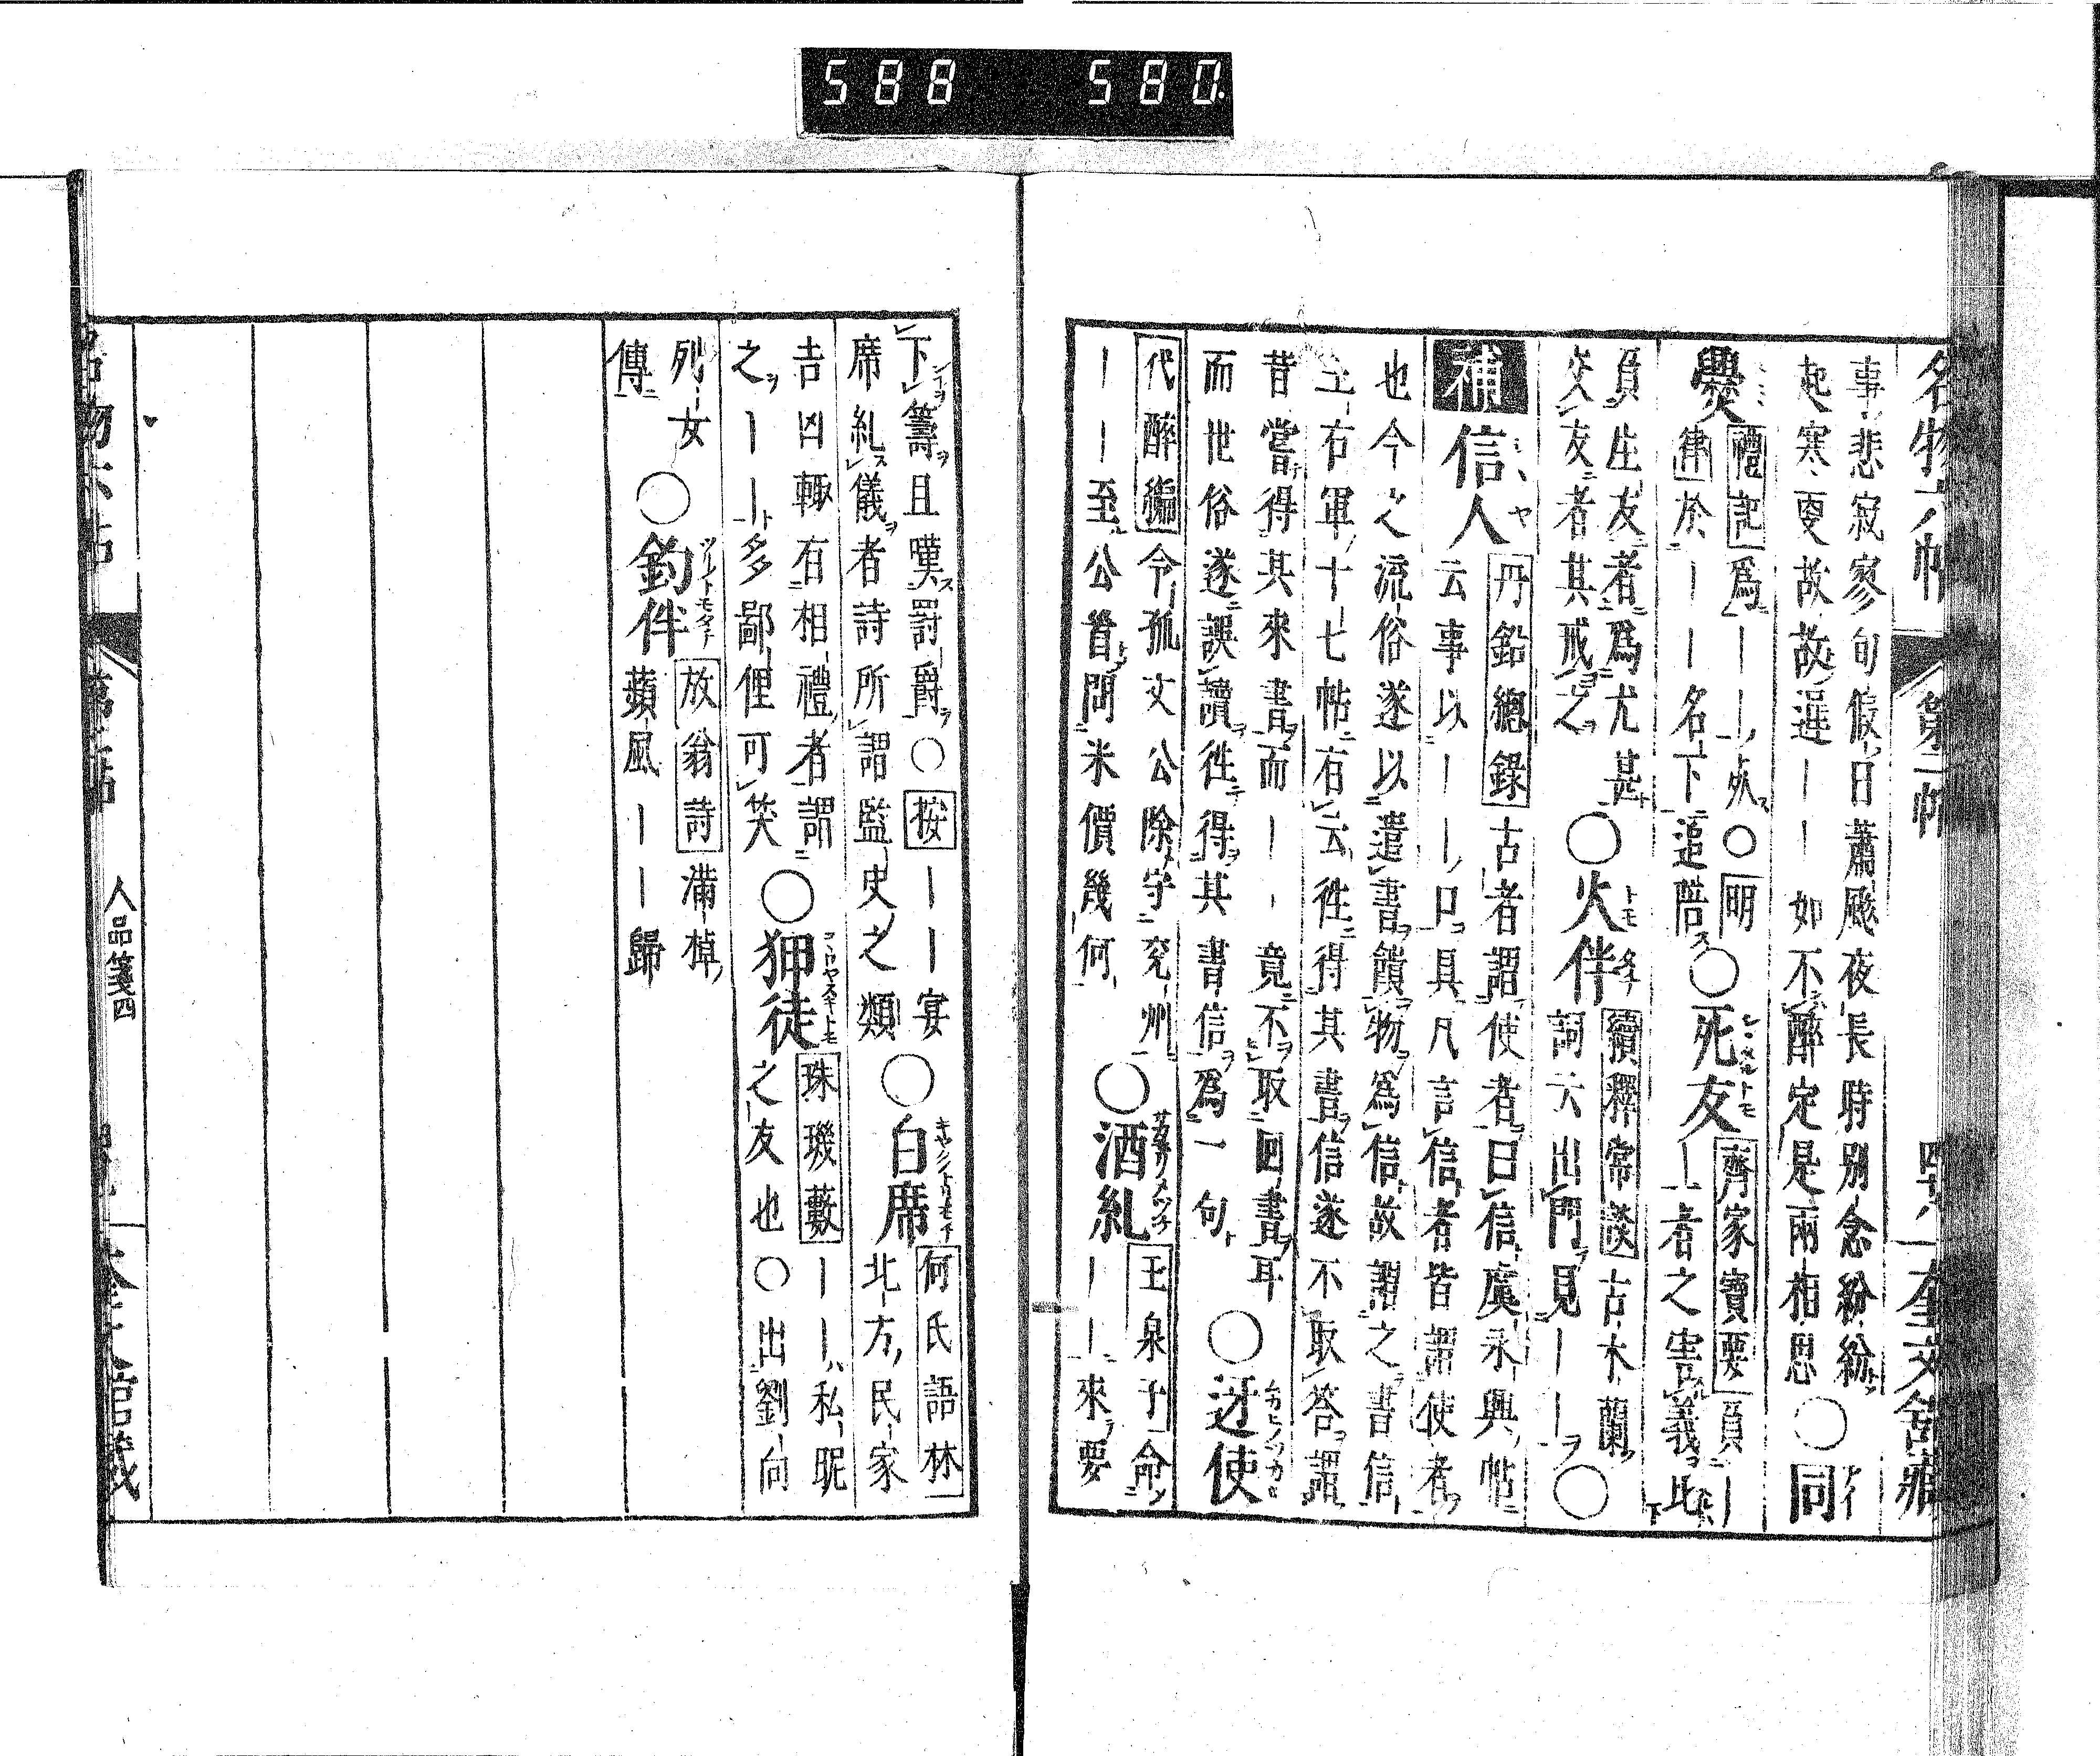 588 580
名物六帖 第二帖 奎文舘藏
事悲寂寥句假日蕭颷夜長時別念紛紛
起寒更故故遲――如不醉定是兩相思 ○同
爨 禮記 爲――
―於――名下追陪 ○明
○死友 齊家寶要 負―
―者之害義此
負生友者爲尤甚
交友者其戒之 ○火伴 續釋常談 古木蘭
詞云出門見―― ○
補 信人 丹鉛總錄 古者謂使者曰信虞永興帖
云事以――口具凡言信者皆謂使者
也今之流俗遂以遣書饋物爲信故謂之書信
王右軍十七帖有云徃得其書信遂不取答謂
昔嘗得其來書而――竟不取回書耳
而世俗遂誤讀徃得其書信爲一句 ○迓使
代醉編 令狐文公除守兖州
――至公首問米價幾何 ○酒糺 玉泉子 命
――來要
下籌且嘆罰爵○按――宴
席糺儀者詩所謂監史之類 ○白席 何氏語林
北方民家
吉凶輙有相禮者謂
之――多鄙俚可笑 ○狎徒 珠璣藪 ――私昵
之友也○出劉向
列女
傳 ○釣伴 放翁詩 滿棹
蘋風――歸
人品箋四